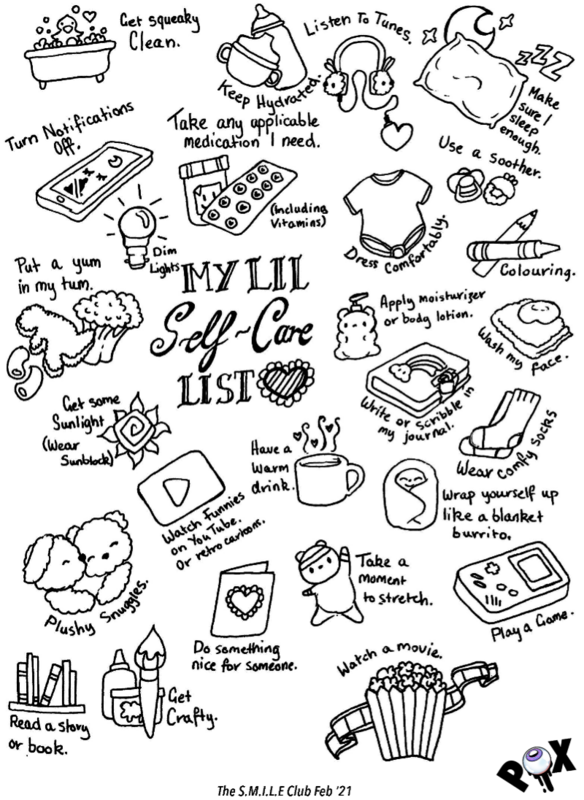 Get squeaky
Clean.
Keep Hydrated.
Listen To Tunes.
zzz
Make
sure I
sleep
enough.
Turn Notifications
Off.
Take any applicable
medication I need.
(Including
Vitamins)
Use a Soother.
Dim
Lights
Dress Comfortably.
Colouring.
Put a yum
in my tum.
MY LIL
Self-Care
LIST
Apply moisturizer
or body lotion.
Wash my face.
Write or scribble in
my journal.
Get some
Sunlight
(Wear
Sunblock)
Have a
Warm
drink.
Wear Comfy socks
Watch Funnies
on YouTube.
Or retro cartoons.
Wrap yourself up
like a blanket
burrito.
Plushy Snuggles.
Take a
moment
to stretch.
Play a Game.
Do something
nice for someone.
Watch a movie.
Read a story
or book.
Get
Crafty.
POX
The S.M.I.L.E Club Feb '21